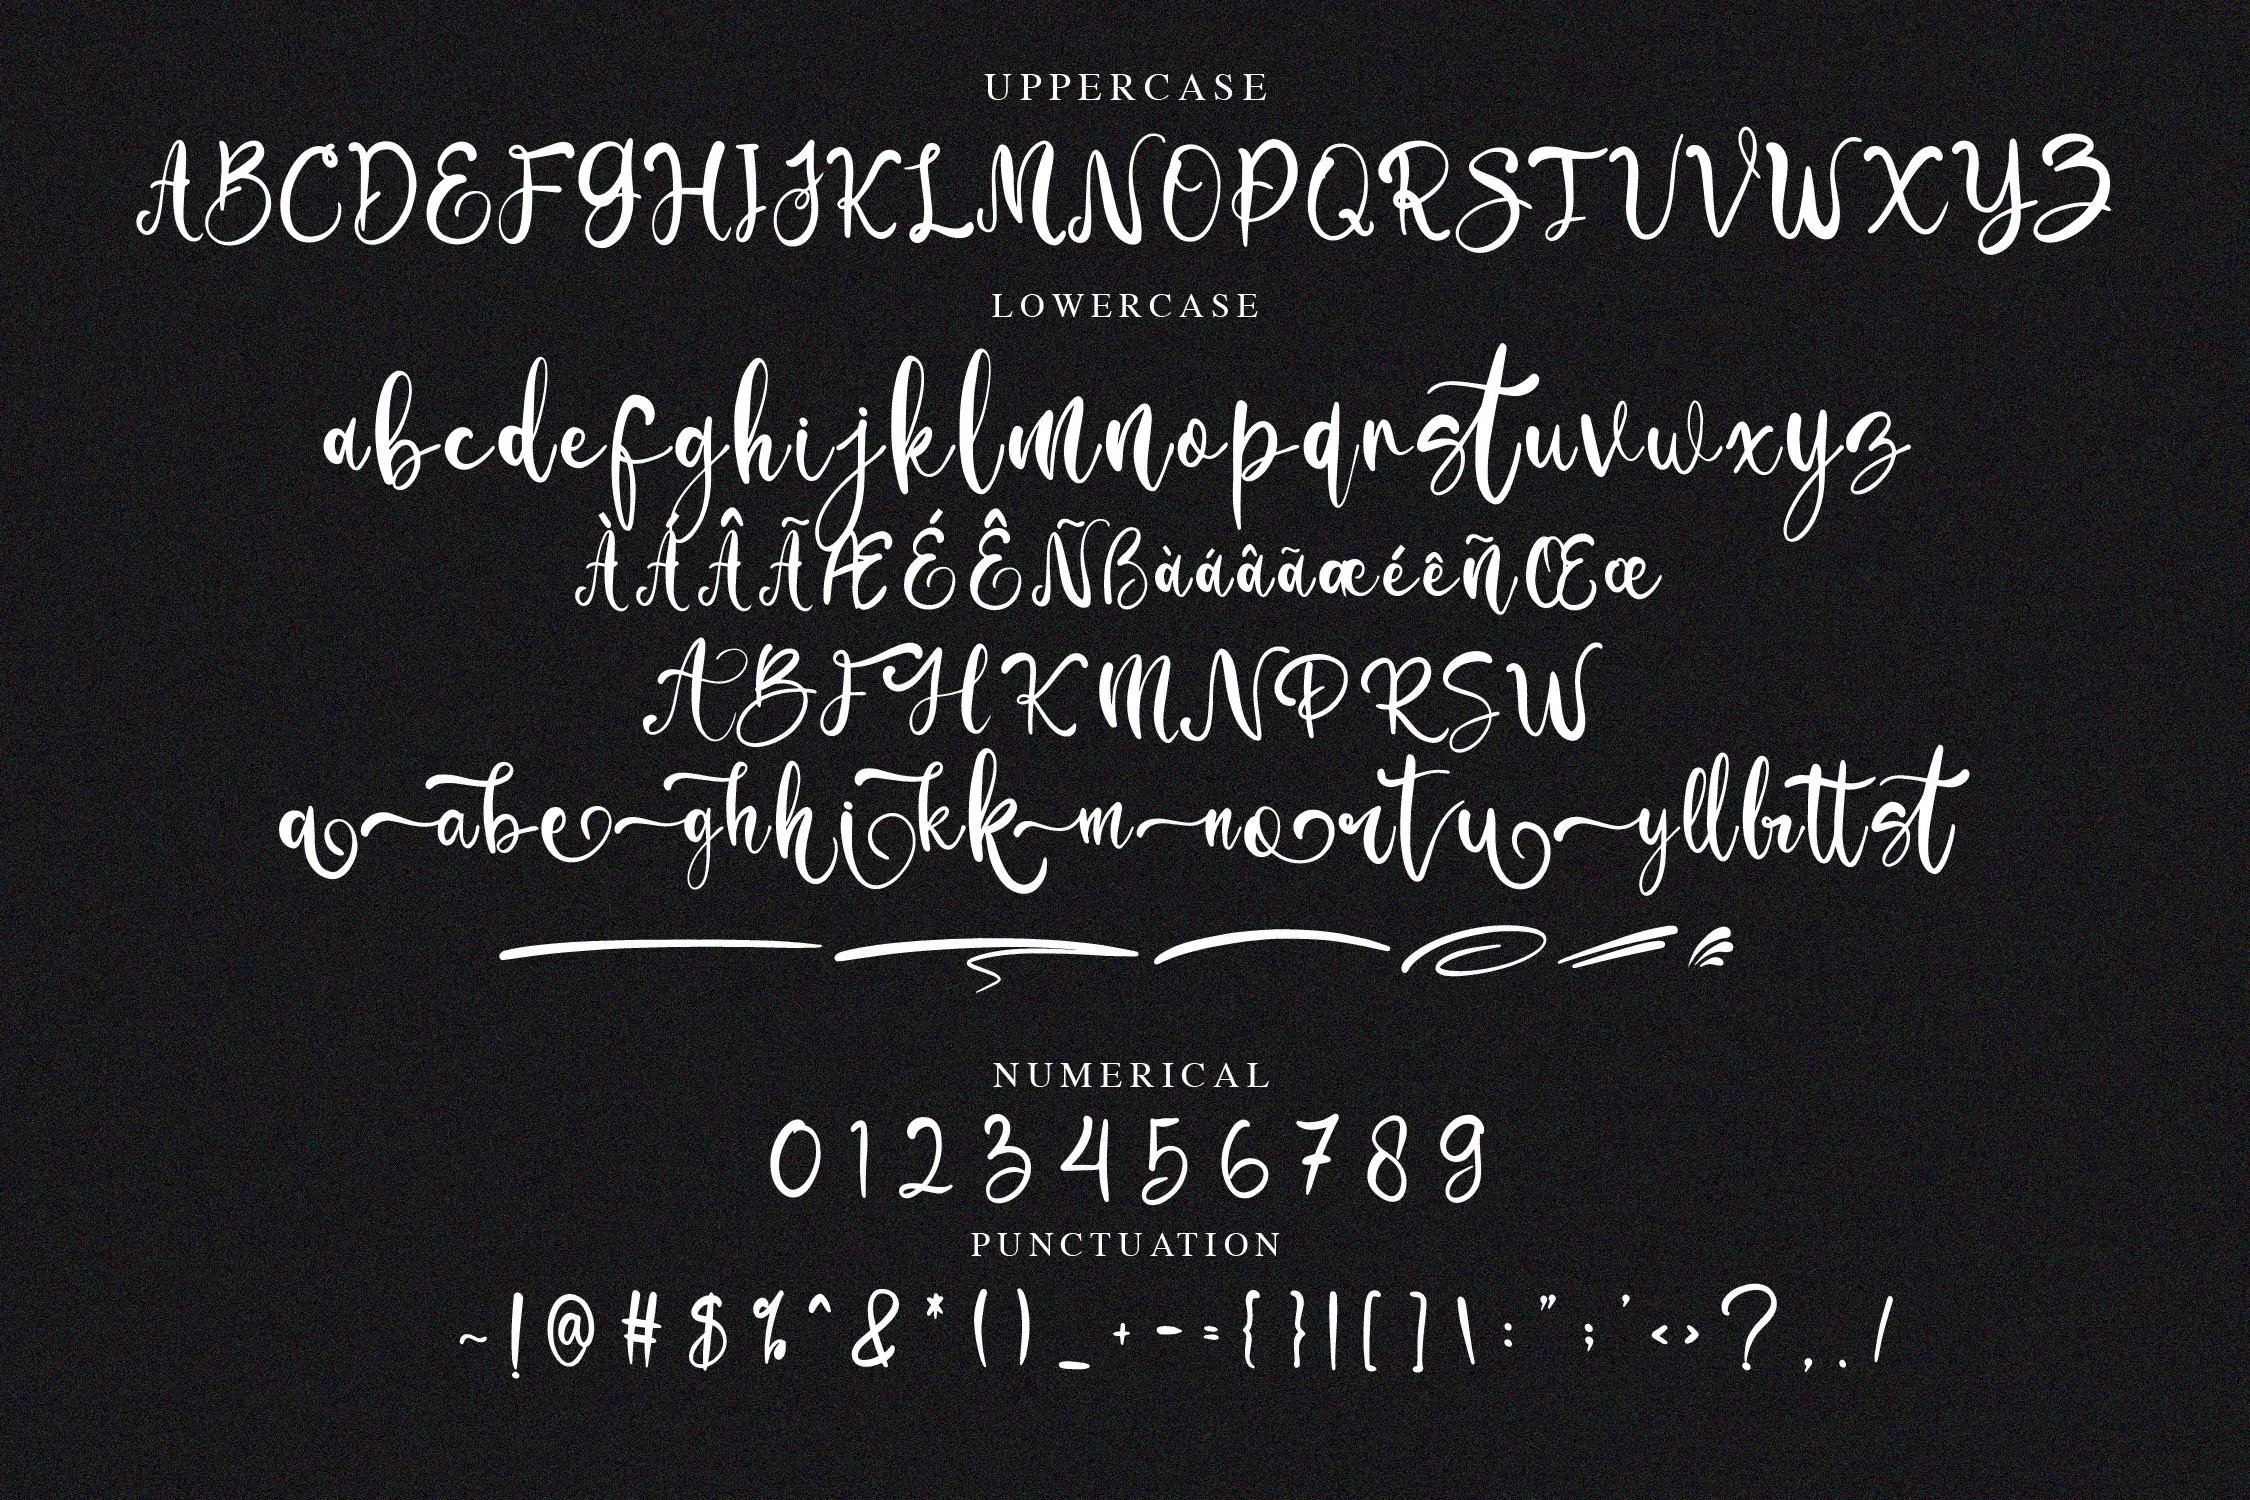 UPPERCASE
ABCDEFGHIJKLMNOPQRSTUVWXYZ
LOWERCASE
abcdefghijklmnopqrstuvwxyz
ÀÁÂÃÆÉÊÑßàáâãæéêñŒœ
ABFHKMNPRSW
aabeghhikkmnortuyllbrttst
NUMERICAL
0 1 2 3 4 5 6 7 8 9
PUNCTUATION
~ ! @ # $ % ^ & * ( ) _ + - = { } | [ ] \ : " ; ' < > ? , . /